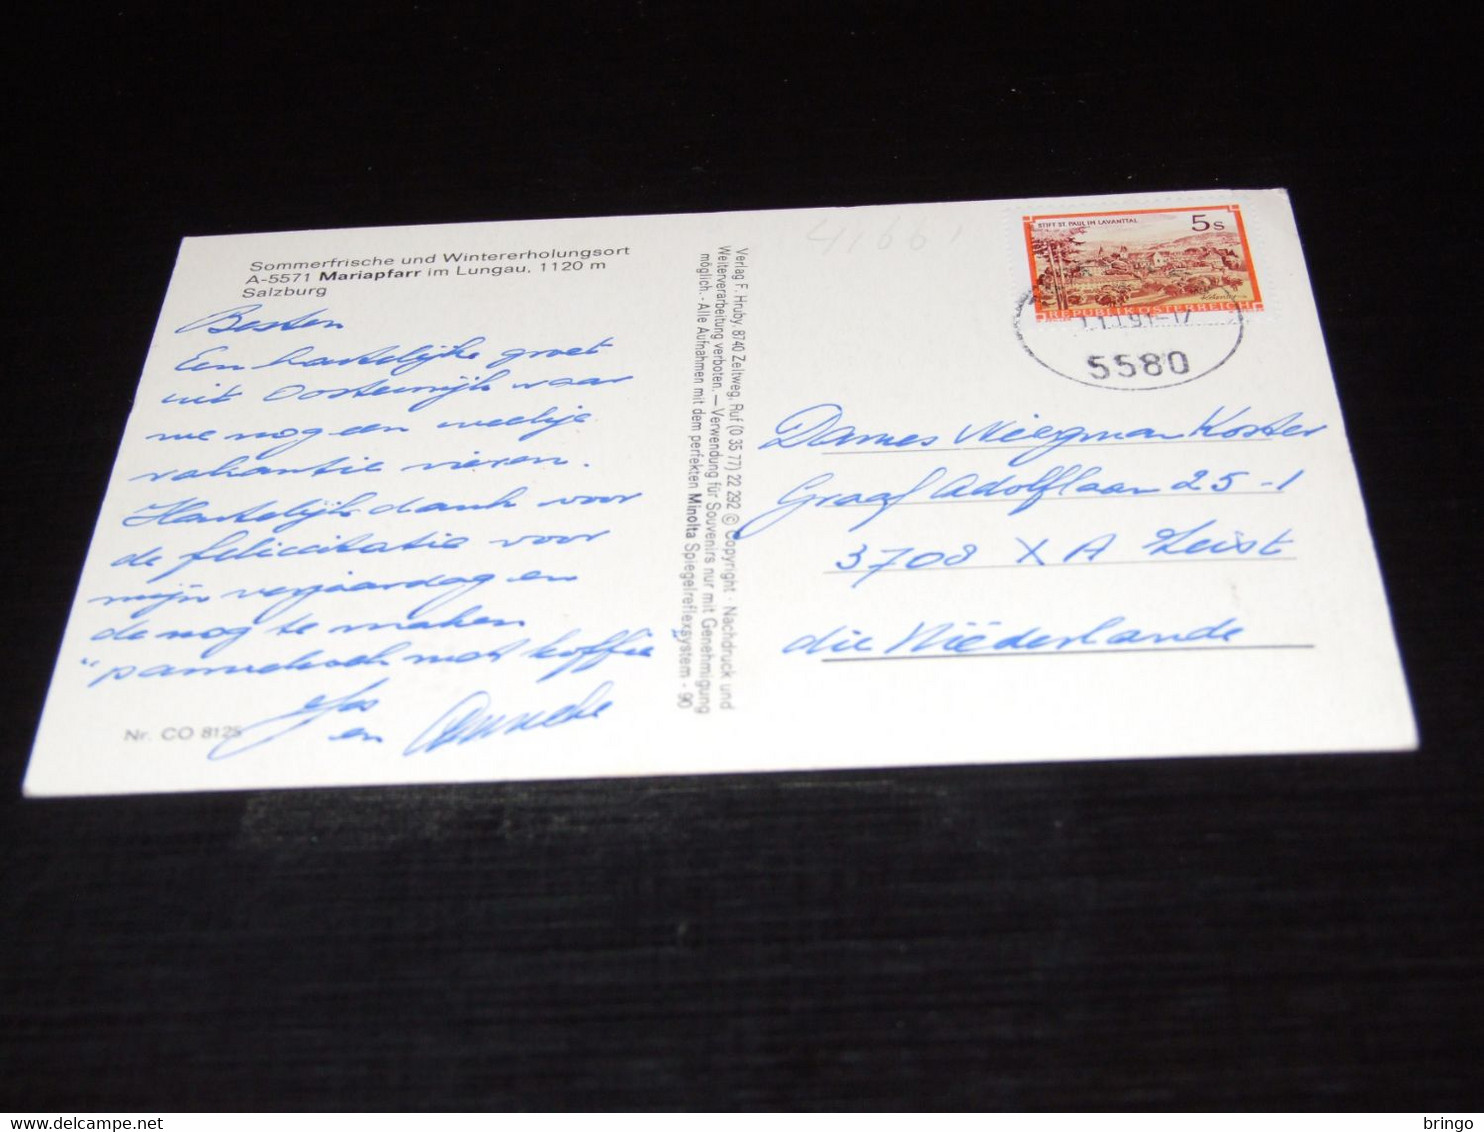 Sommerfrische und Wintererholungsort
A-5571 Mariapfarr im Lungau, 1120 m
Salzburg
Besten
Een hartelijke groet
uit Oostenrijk waar
we nog een weekje
vakantie vieren.
Hartelijk dank voor
de felicitatie voor
mijn verjaardag en
de nog te maken
"pannekoek met koffie
Jos
en Anneke
Nr. CO 8125
Verlag F. Hruby, 8740 Zeltweg, Ruf (0 35 77) 22 292 © Copyright · Nachdruck und
Weiterverarbeitung verboten. — Verwendung für Souvenirs nur mit Genehmigung
möglich. · Alle Aufnahmen mit dem perfekten Minolta Spiegelreflexsystem · 90
41661
STIFT ST. PAUL IM LAVANTTAL
5 S
REPUBLIK ÖSTERREICH
91-17
5580
Dames Wiegman Koster
Graaf Adolflaan 25-1
3708 XA Zeist
die Niëderlande
bringo